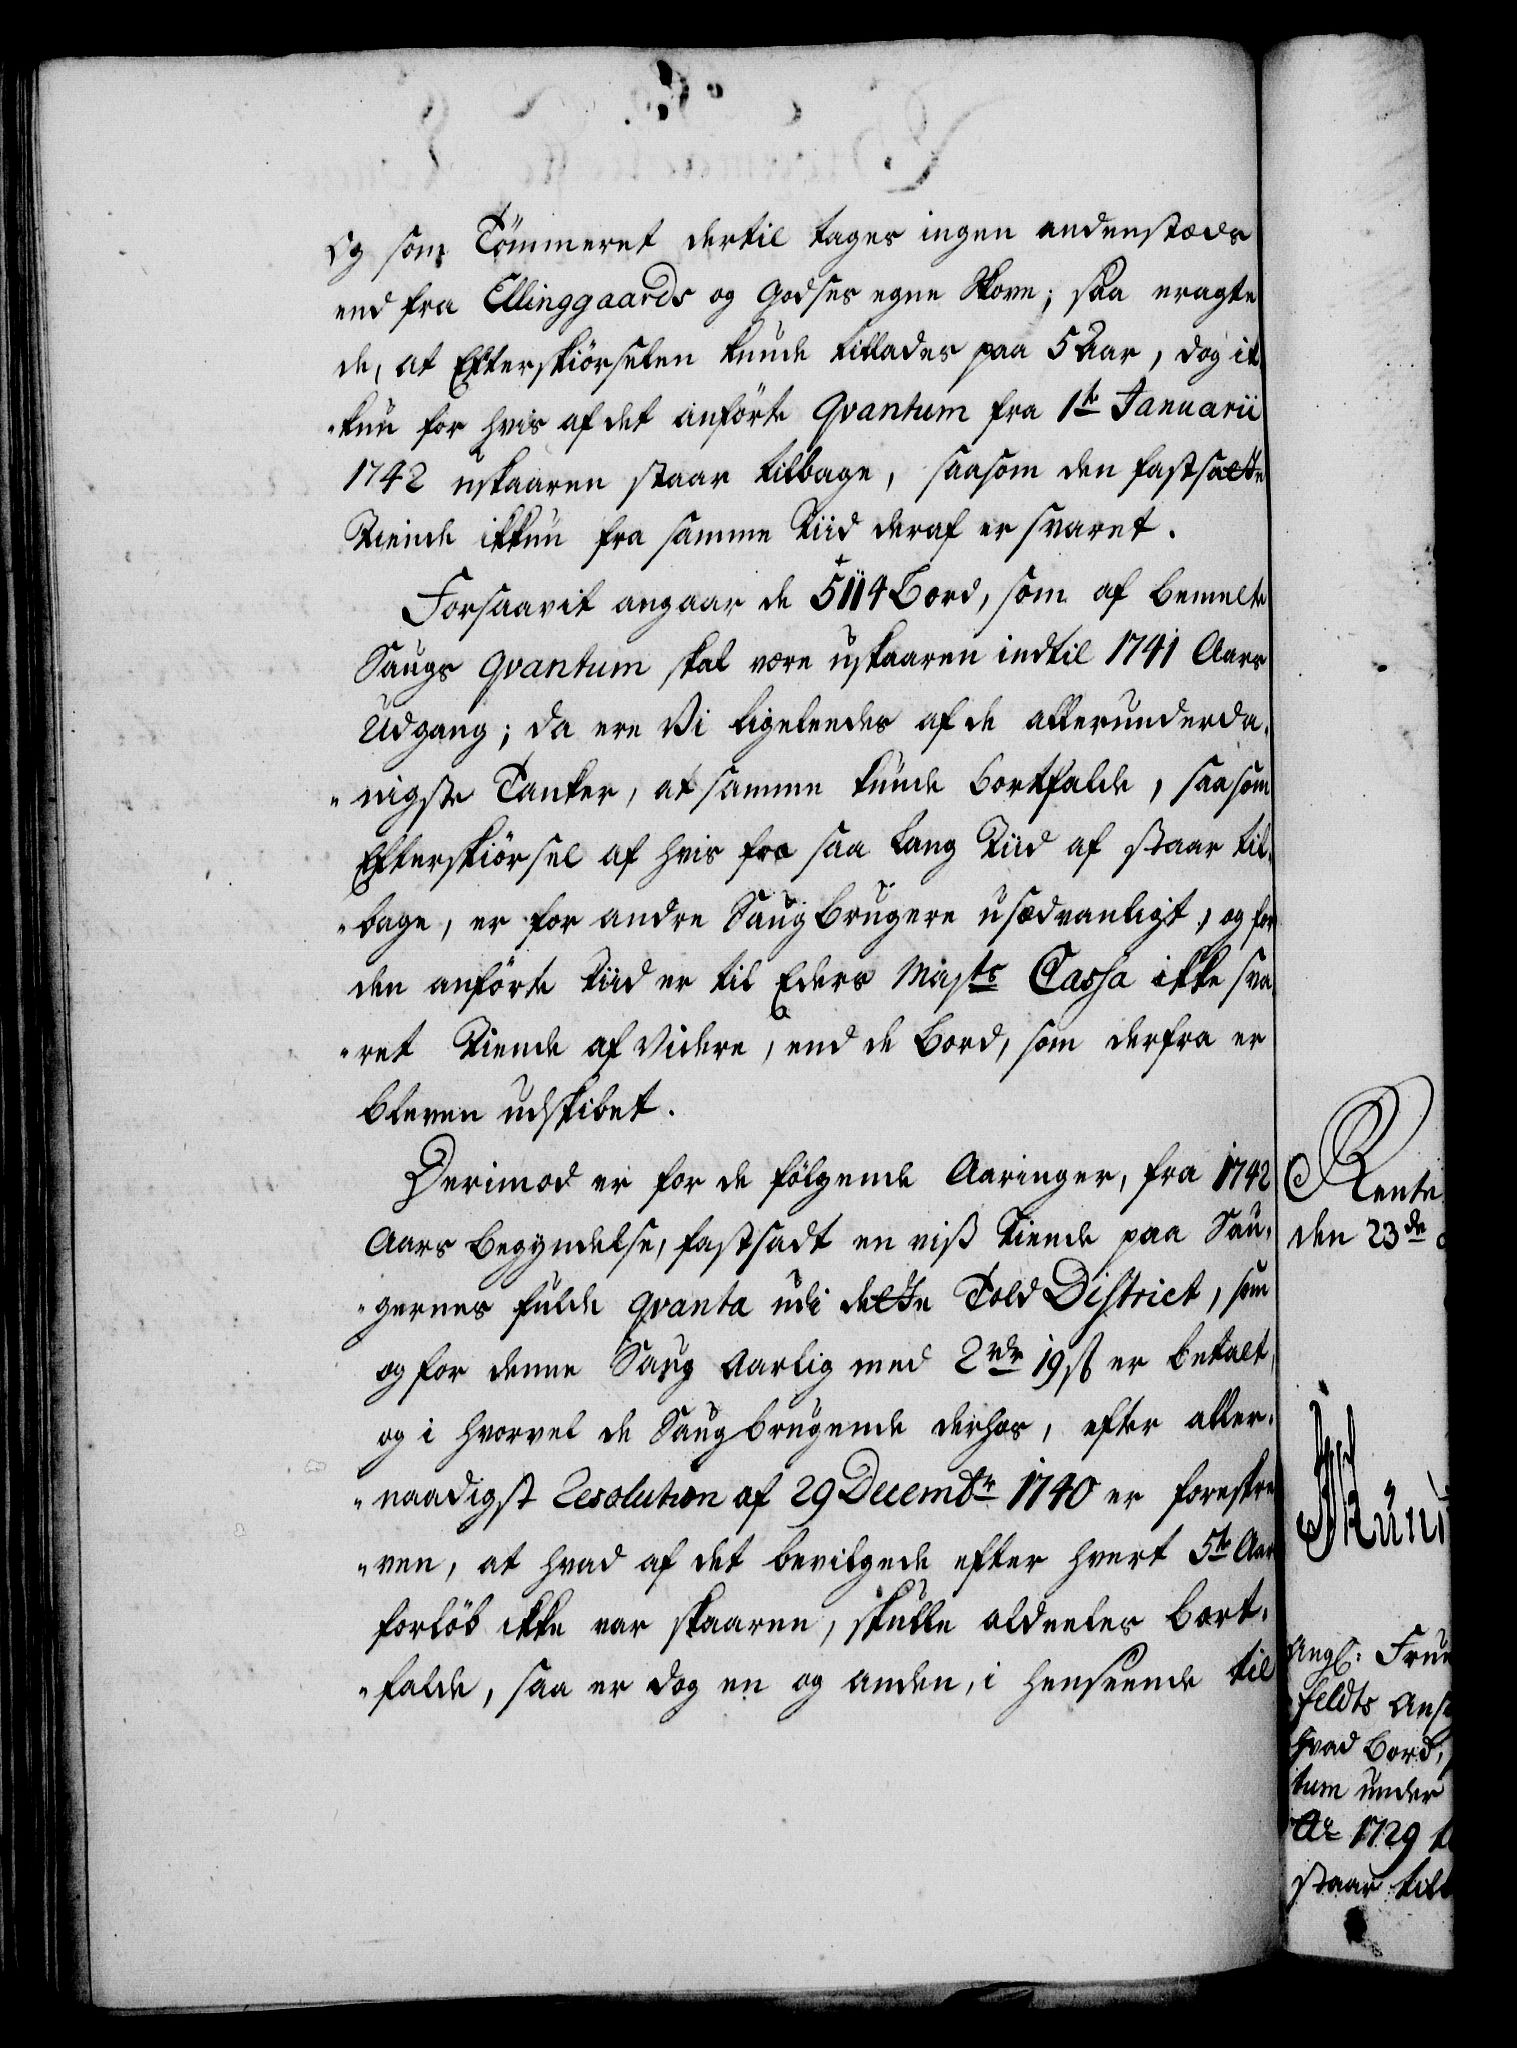 og som Tömmeret dertil tages ingen andenstæds
end fra Ellinggaards og Godses egne Skove; saa eragte
de, at Efterskiörselen kunde tillades paa 5 Aar, dog ik
"kun for hvis af det anförte Qvantum fra 1te Januarii
1742 uskaaren staar tilbage, saasom den fastsatte
Tiende ikkun fra samme Tiid deraf er svaret.
Forsaavit angaar de 5114 Bord, som af bemelte
Saugs Qvantum skal være uskaaren indtil 1741 Aars
Udgang; da ere Vi ligeledes af de allerunderda,
"nigste Tanker, at samme kunde bortfalde, saasom
Efterskiörsel af hvis fra saa lang Tiid af staar til,
"bage, er for andre Saugbrugere usædvanligt, og for
den anförte Tiid er til Eders Majts Cassa ikke sva
"ret Tiende af videre, end de Bord, som derfra er
bleven udskibet.
Derimod er for de fölgende Aaringer, fra 1742
Aars Begyndelse, fastsadt en viss Tiende paa Sau,
"gernes fulde qvanta udi dette Told District, som
og for denne Saug Aarlig med 2 rdr 19 ß er betalt,
og i hvorvel de Saugbrugende derhos, efter aller,
"naadigst Resolution af 29 Decembr 1740 er foreskre
"ven, at hvad af det bevilgede efter hvert 5te Aars
forlöb ikke var skaaren, skulle aldeeles bort,
"falde, saa er dog en og anden, i henseende til
Rente
den 23de
Ang: Frue
feldts Ans
hvad Bord,
tum under
Ao 1729
staar til